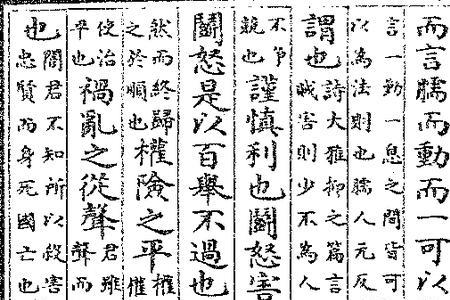 而言臑而動而一可以
言一動一息之間皆可
以為法則也臑人元反
謂也詩大雅抑之篇言
賊害則少不為人
不爭
競也謹慎利也鬭怒害
鬭怒是以百舉不過也
然而終歸
之於順也權險之平權
使治
平也禍亂之從聲君雖
聲而
也闇君不知所以殺害
忠賢而身死國亡也